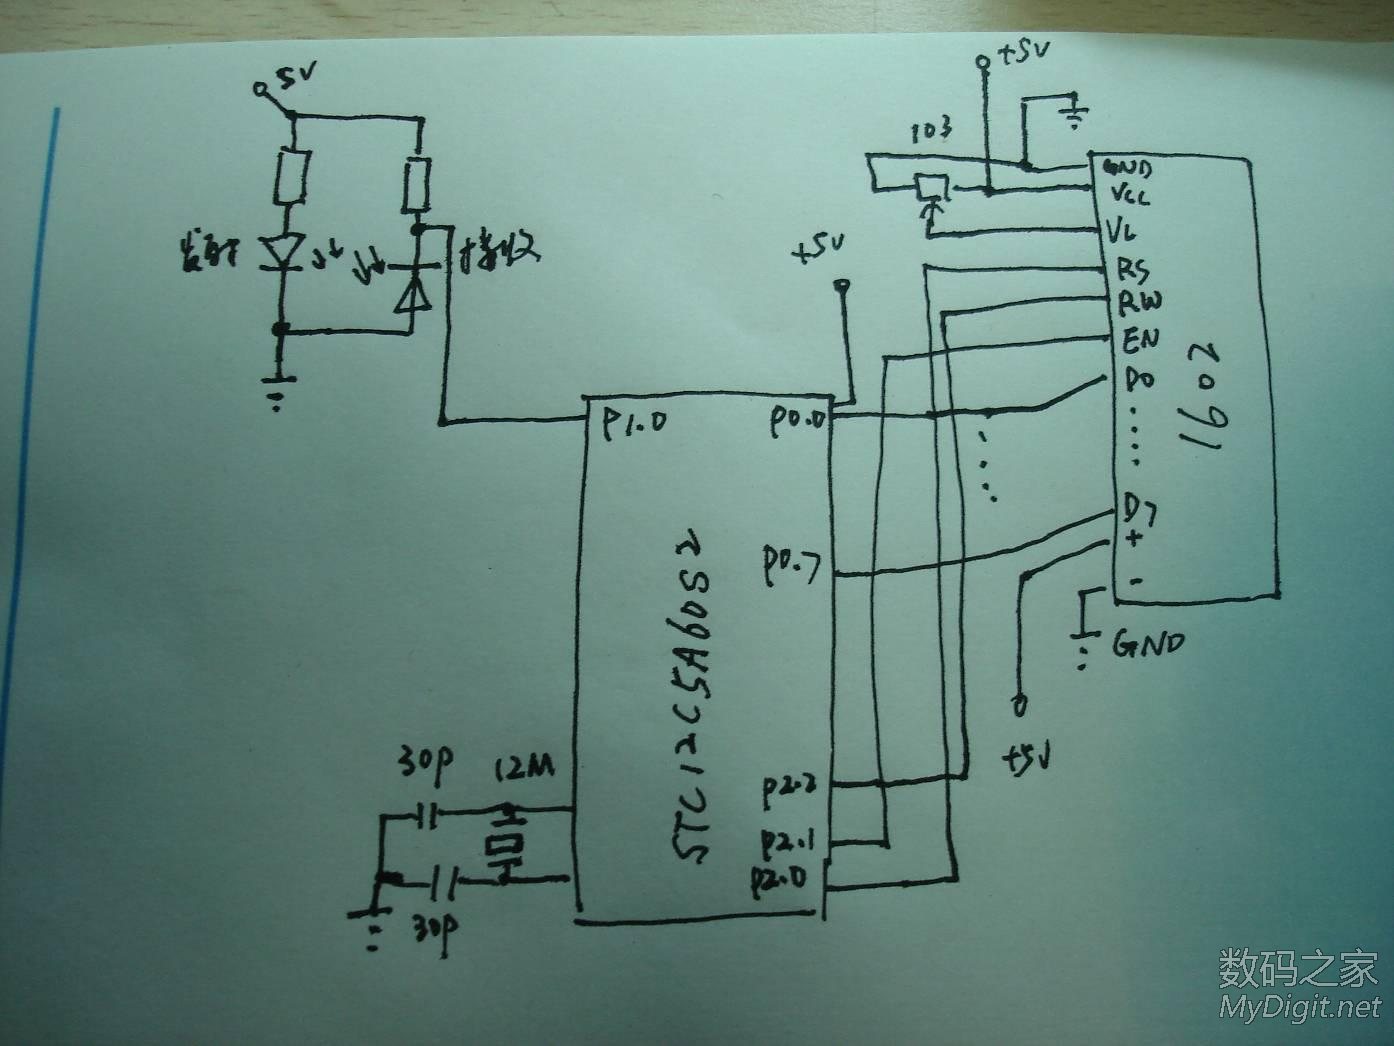 5V
+5V
103
GND
VCC
VL
发射
接收
+5V
RS
RW
EN
D0
1602
P1.0
P0.0
D7
+
-
P0.7
STC12C5A60S2
GND
+5V
30P
12M
P2.2
P2.1
P2.0
30P
数码之家
MyDigit.net